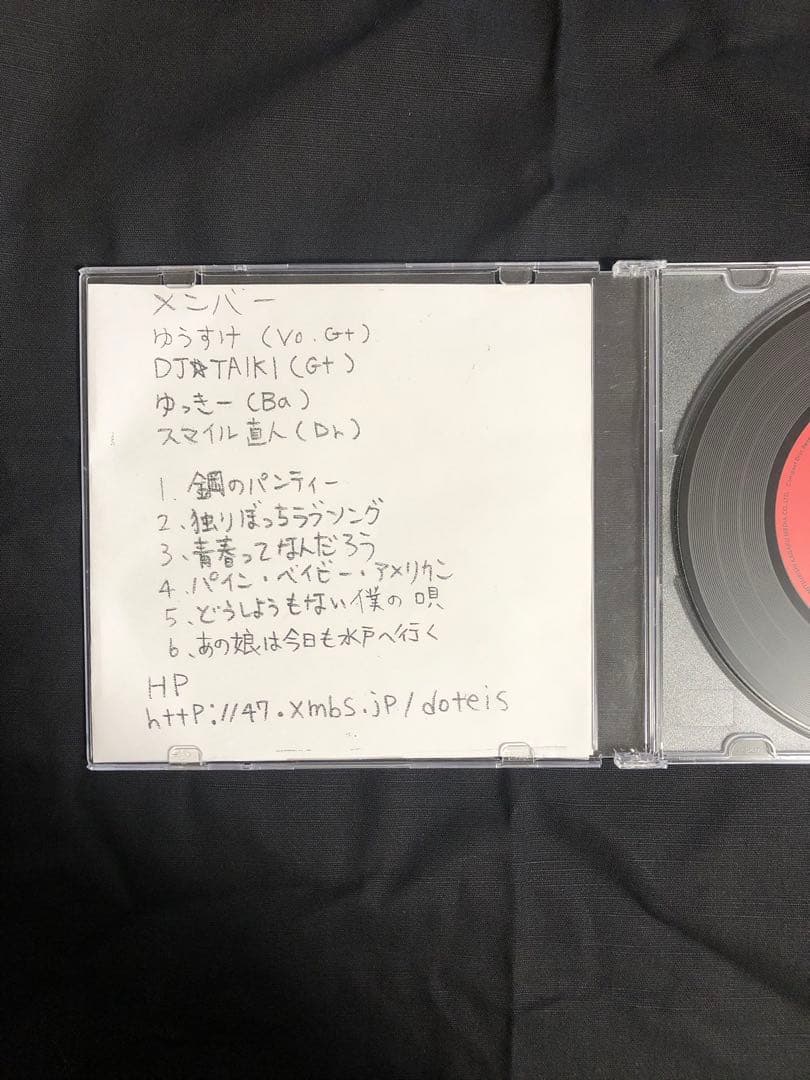 メンバー
ゆうすけ (Vo.Gt)
DJ☆TAIKI (Gt)
ゆっきー (Ba)
スマイル直人 (Dr)
1. 鋼のパンティー
2、独りぼっちラブソング
3、青春ってなんだろう
4、パイン・ベイビー・アメリカン
5、どうしようもない僕の唄
6、あの娘は今日も水戸へ行く
HP
http://47.xmbs.jp/doteis